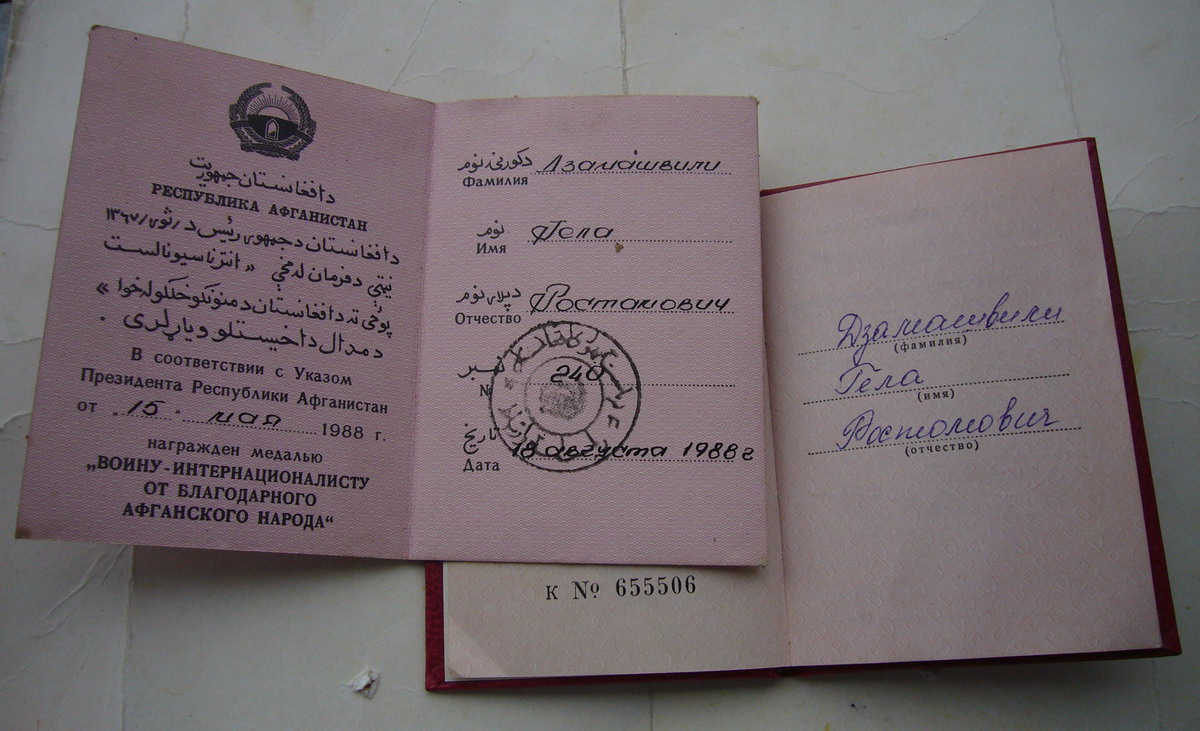 دافغانستان جمهوریت
РЕСПУБЛИКА АФГАНИСТАН
دافغانستان دجمهوری رئیس د / ثور / ۱۳۶۷
نیټې دفرمان له مخې « انترناسیونالست
پوځی ته دافغانستان دمنونکو خلکو له خوا »
دمدال داخیستلو ویاړلری .
В соответствии с Указом
Президента Республики Афганистан
от 15 мая 1988 г.
награжден медалью
„ВОИНУ-ИНТЕРНАЦИОНАЛИСТУ
ОТ БЛАГОДАРНОГО
АФГАНСКОГО НАРОДА“
دکورنۍ نوم Дзамашвили
Фамилия
نوم Гела
Имя
دپلار نوم Ростомович
Отчество
نمبر 240
№
تاریخ 18 августа 1988 г
Дата
К № 655506
Дзамашвили
(фамилия)
Гела
(имя)
Ростомович
(отчество)